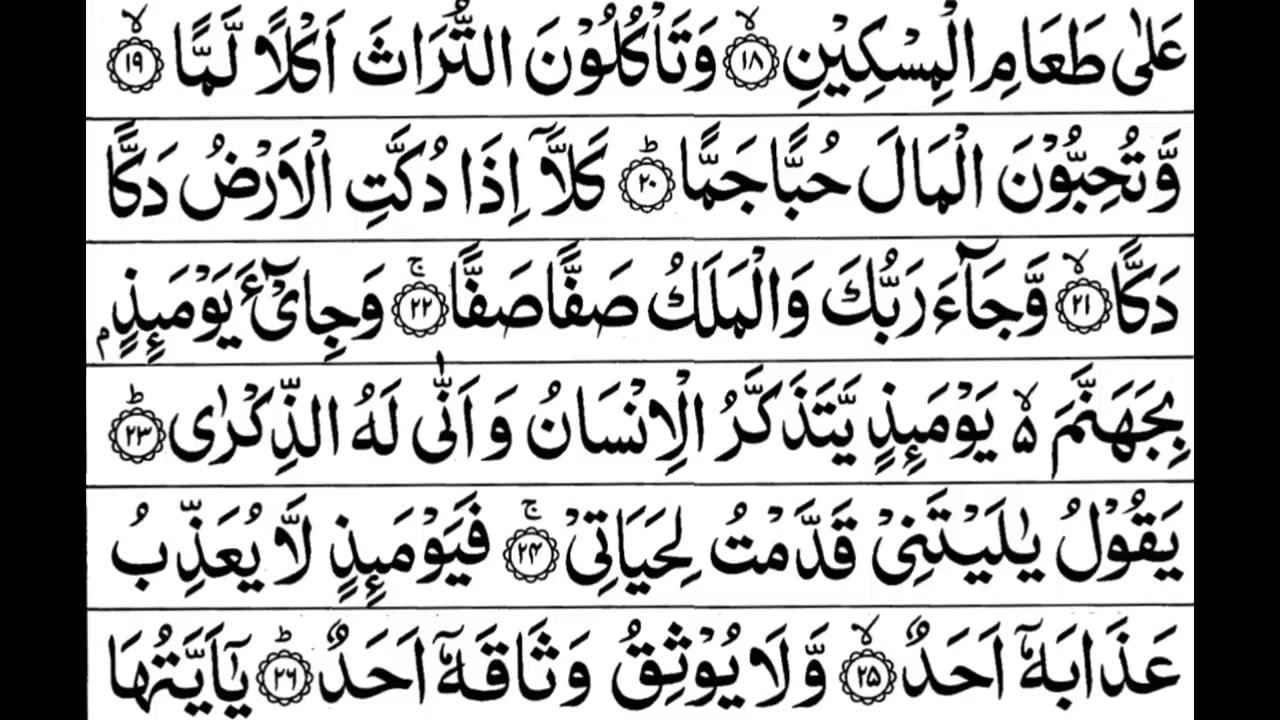 عَلٰى طَعَامِ الْمِسْكِيْنِ ۙ﴿۱۸﴾ وَتَاْكُلُوْنَ التُّرَاثَ اَكْلًا لَّمًّا ۙ﴿۱۹﴾
وَّتُحِبُّوْنَ الْمَالَ حُبًّا جَمًّا ؕ﴿۲۰﴾ كَلَّاۤ اِذَا دُكَّتِ الْاَرْضُ دَكًّا
دَكًّا ۙ﴿۲۱﴾ وَّجَآءَ رَبُّكَ وَالْمَلَكُ صَفًّا صَفًّا ۚ﴿۲۲﴾ وَجِایْٓءَ يَوْمَىِٕذٍۭ
بِجَهَنَّمَ ۙ۬ يَوْمَىِٕذٍ يَّتَذَكَّرُ الْاِنْسَانُ وَاَنّٰى لَهُ الذِّكْرٰى ؕ﴿۲۳﴾
يَقُوْلُ يٰلَيْتَنِیْ قَدَّمْتُ لِحَيَاتِیْ ۚ﴿۲۴﴾ فَيَوْمَىِٕذٍ لَّا يُعَذِّبُ
عَذَابَهٗۤ اَحَدٌ ۙ﴿۲۵﴾ وَّلَا يُوْثِقُ وَثَاقَهٗۤ اَحَدٌ ؕ﴿۲۶﴾ يٰۤاَيَّتُهَا